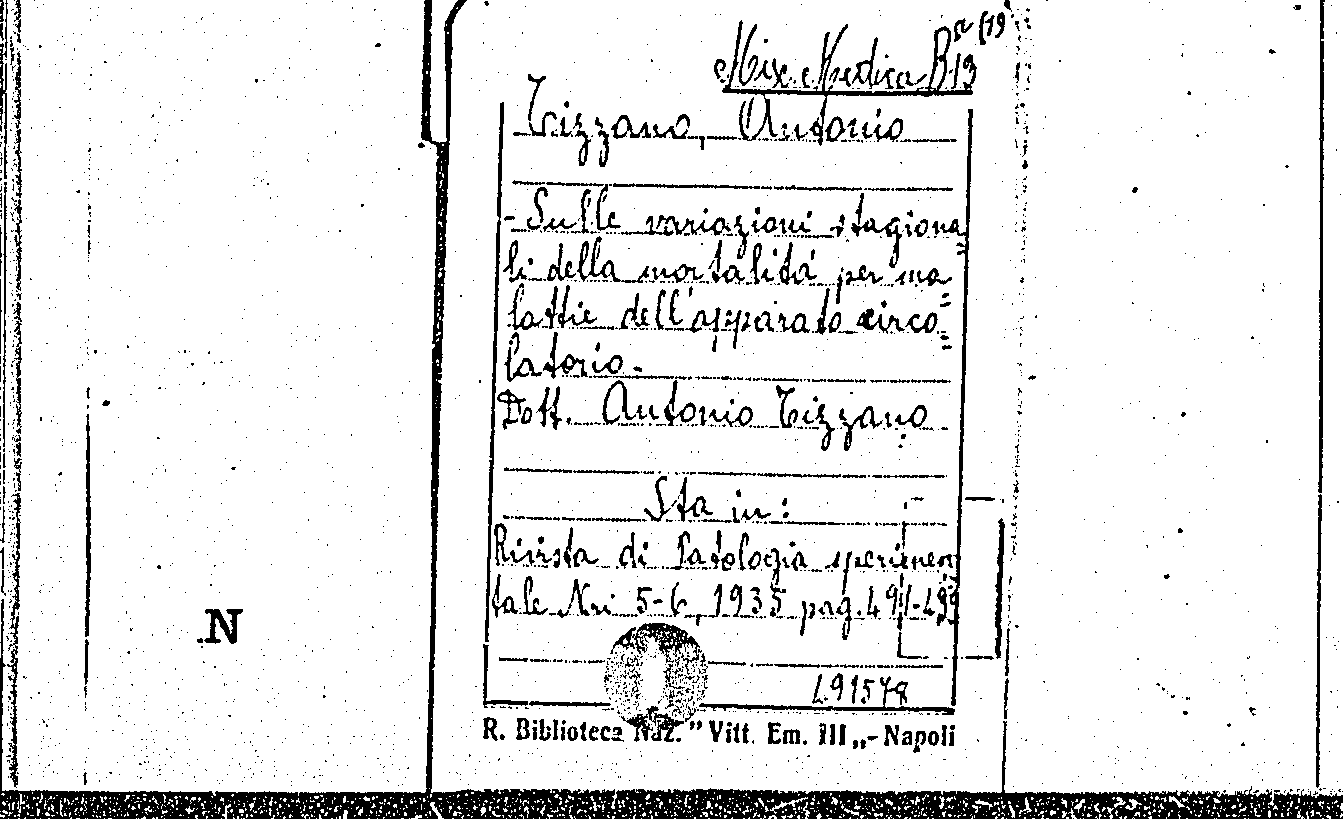 Misc. Medica B 13 (19
Tizzano, Antonio
- Sulle variazioni stagiona=
li della mortalitá per ma=
lattie dell'apparato circo=
latorio.
Dott. Antonio Tizzano.
Sta in:
Rivista di Patologia sperimen
tale Nri 5-6, 1935 pag. 491-499
L91578
R. Biblioteca Naz. "Vitt. Em. III„ - Napoli
N